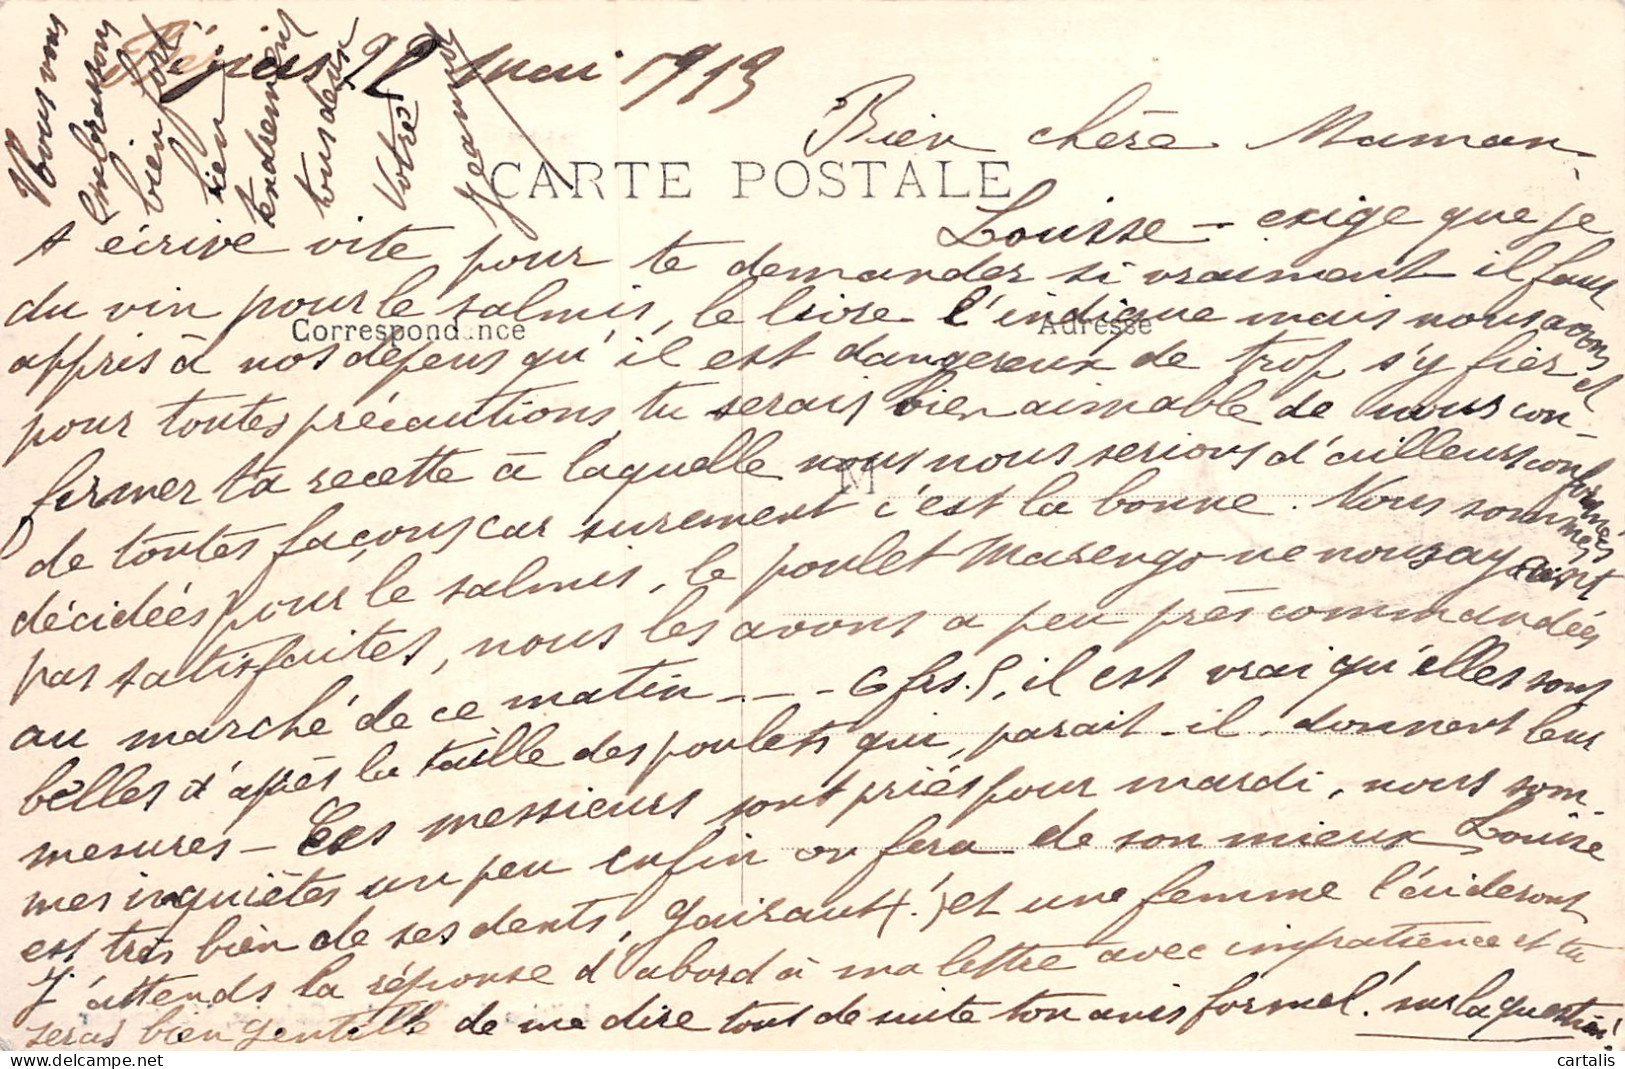 22 mai 1913
Bien chère Maman,
CARTE POSTALE
Louise - exige que je
t'écrive vite pour te demander si vraiment il faut
du vin pour le salmis, le livre l'indique mais nous avons
Correspondance
Adresse
appris à nos dépens qu'il est dangereux de trop s'y fier et
pour toutes précautions, tu serais bien aimable de nous con-
firmer ta recette à laquelle nous nous serions d'ailleurs conformées
M
de toutes façons car surement c'est la bonne. Nous sommes
décidées pour le salmis, le poulet Marengo ne nous ayant
pas satisfaites, nous les avons a peu près commandées
au marché de ce matin - - - 6 frs. 5, il est vrai qu'elles sont
belles d'après la taille des poulets qui, parait-il donnent leur
mesures - Ces messieurs sont priés pour mardi, nous som-
mes inquiètes un peu enfin on fera de son mieux Louise
est très bien de ses dents, (!) et une femme l'aideront
J'attends la réponse d'abord à ma lettre avec impatience et tu
serais bien gentille de me dire tout de suite ton avis formel! sur la question!
Nous vous
embrassons
bien fort
bien
tendrement
tous deux
Votre
Jeanne
cartalis